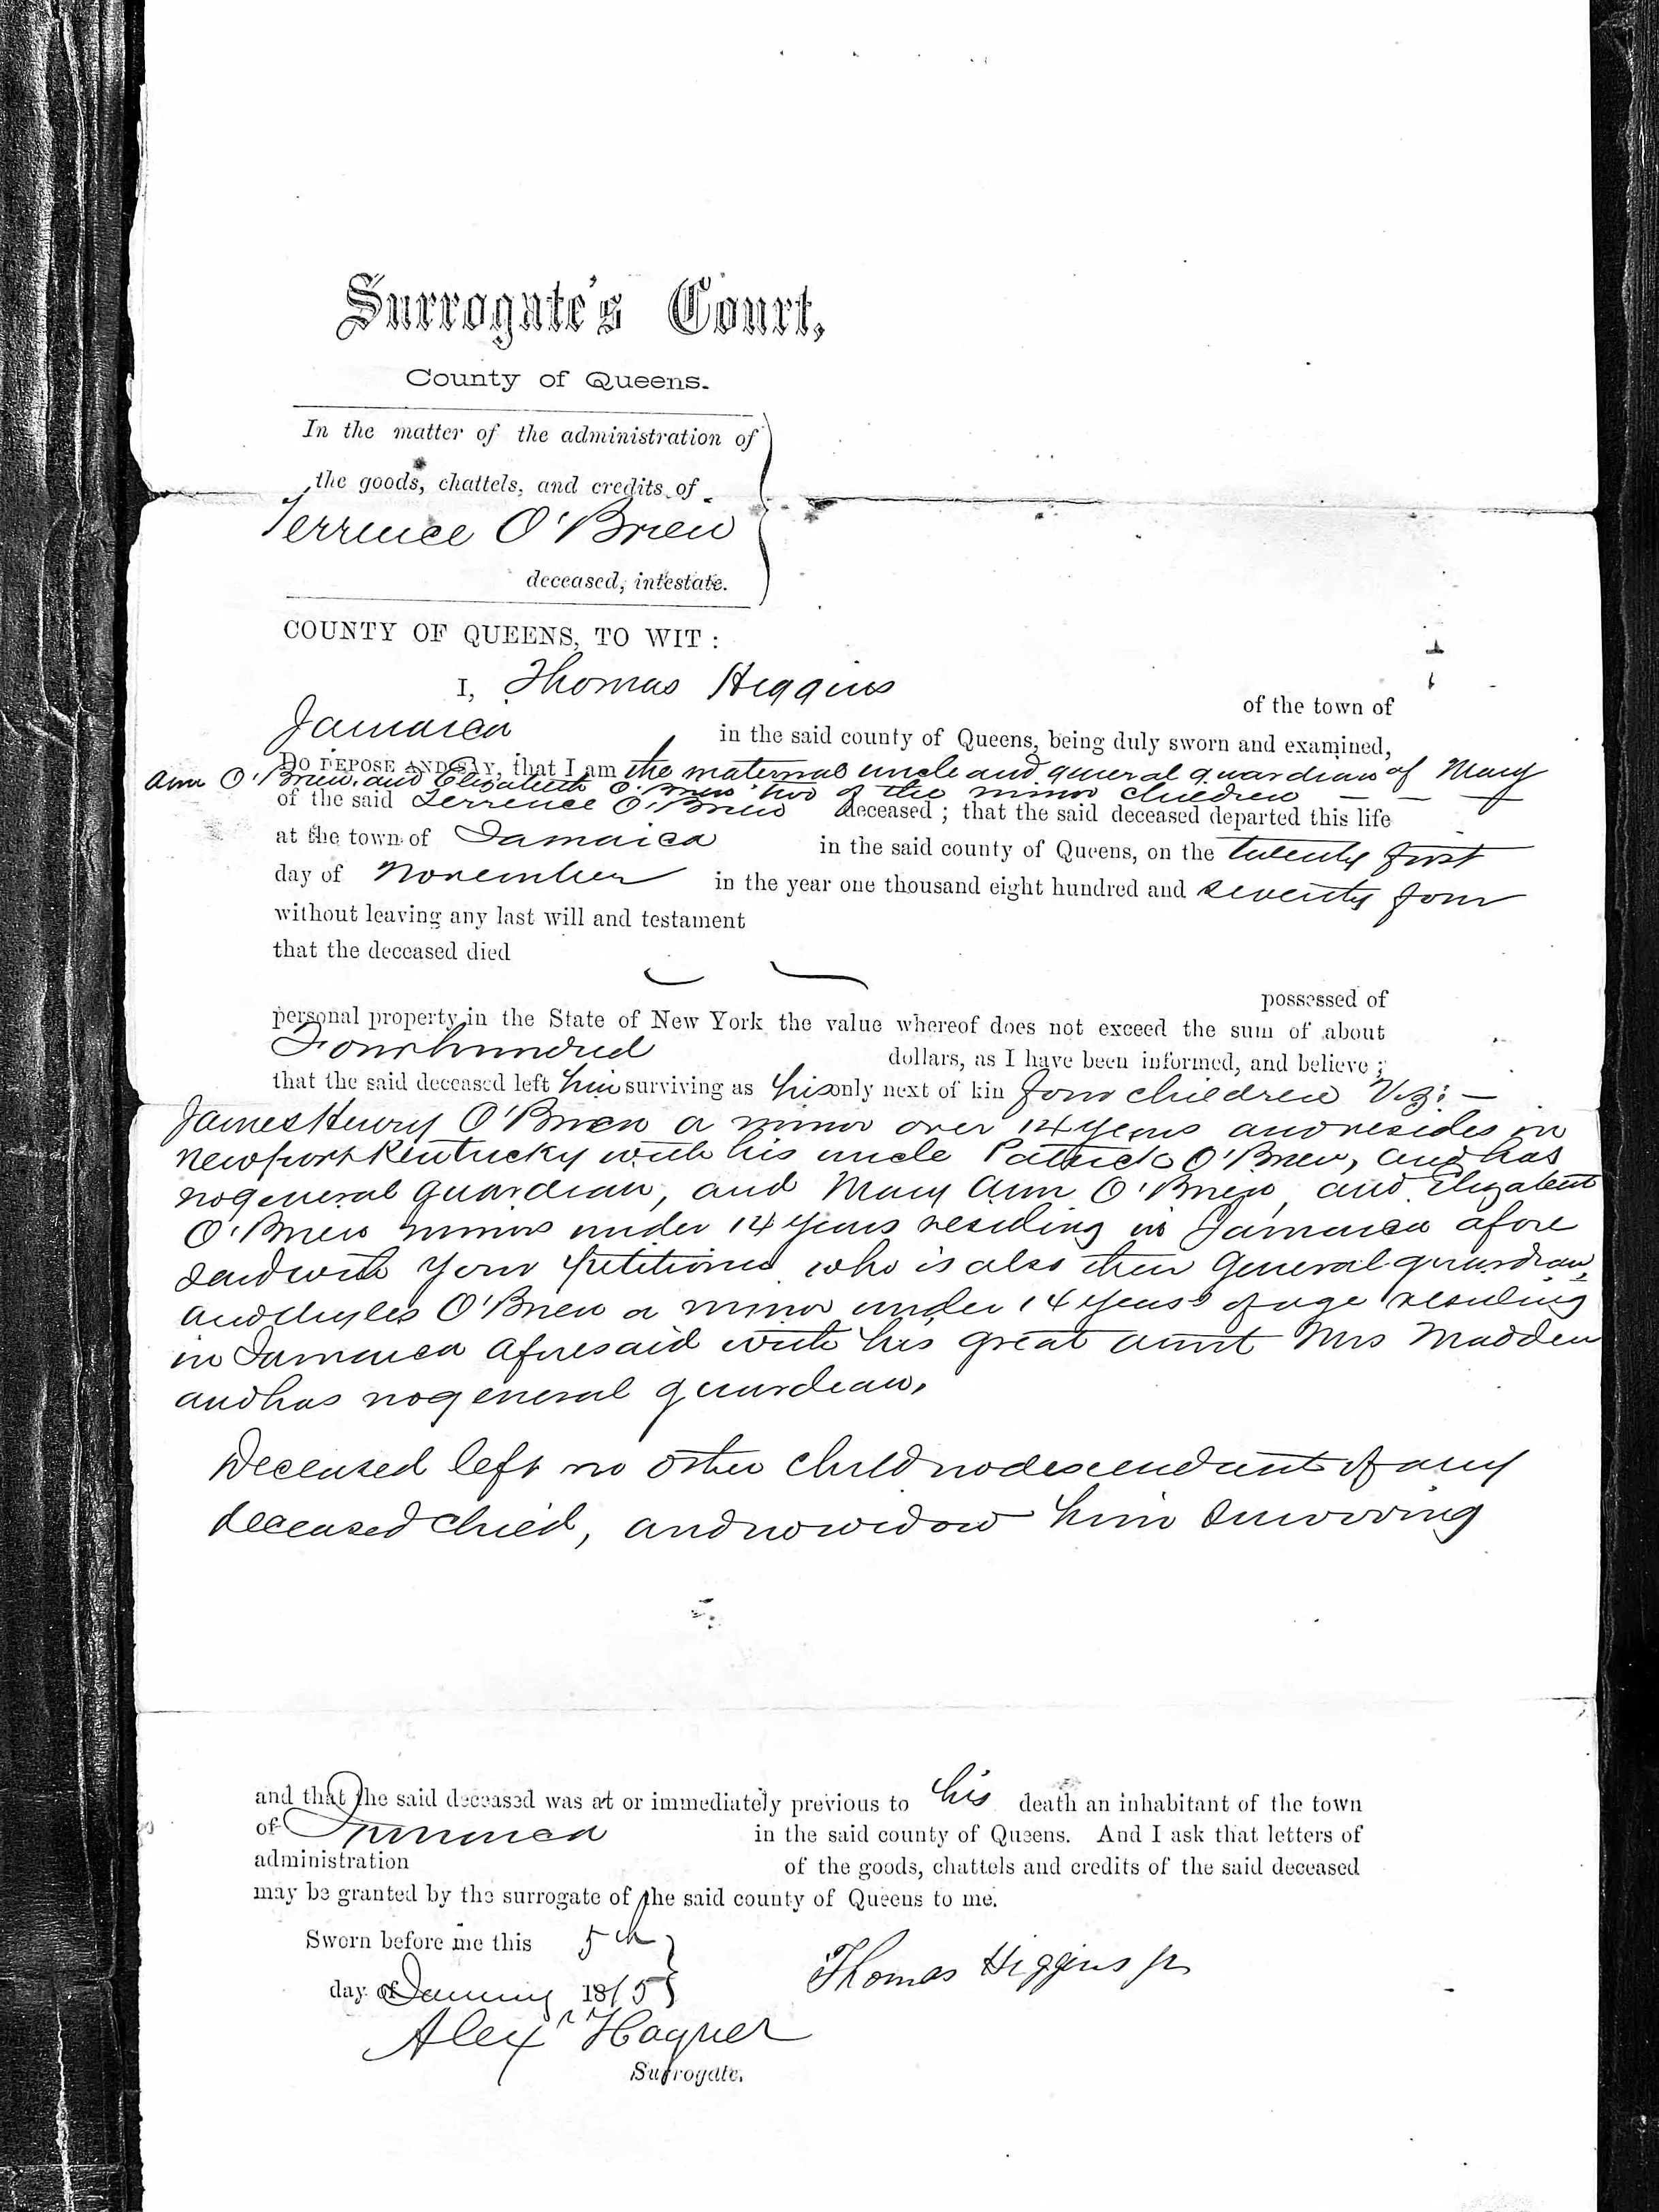 Surrogate's Court,
County of Queens.
In the matter of the administration of
the goods, chattels, and credits of
Terrence O'Brien
deceased, intestate.
COUNTY OF QUEENS, TO WIT :
I, Thomas Higgins of the town of
Jamaica in the said county of Queens, being duly sworn and examined,
DO DEPOSE AND SAY, that I am the maternal uncle and general guardian of Mary
Ann O'Brien and Elizabeth O'Brien two of the minor children
of the said Terrence O'Brien deceased ; that the said deceased departed this life
at the town of Jamaica in the said county of Queens, on the twenty first
day of November in the year one thousand eight hundred and seventy four
without leaving any last will and testament
that the deceased died
possessed of
personal property in the State of New York the value whereof does not exceed the sum of about
Four hundred dollars, as I have been informed, and believe ;
that the said deceased left him surviving as his only next of kin four children Viz: —
James Henry O'Brien a minor over 14 years and resides in
Newport Kentucky with his uncle Patrick O'Brien, and has
no general guardian, and Mary Ann O'Brien and Elizabeth
O'Brien minors under 14 years residing in Jamaica afore
said with your petitioner who is also their General guardian,
and Myles O'Brien a minor under 14 years of age residing
in Jamaica aforesaid with his great aunt Mrs Madden
and has no general guardian.
Deceased left no other child no descendant of any
deceased child, and no widow him surviving
and that the said deceased was at or immediately previous to his death an inhabitant of the town
of Jamaica in the said county of Queens. And I ask that letters of
administration of the goods, chattels and credits of the said deceased
may be granted by the surrogate of the said county of Queens to me.
Sworn before me this 5th
day of January 1875
Thomas Higgins Jr
Alexr Hagner
Surrogate.